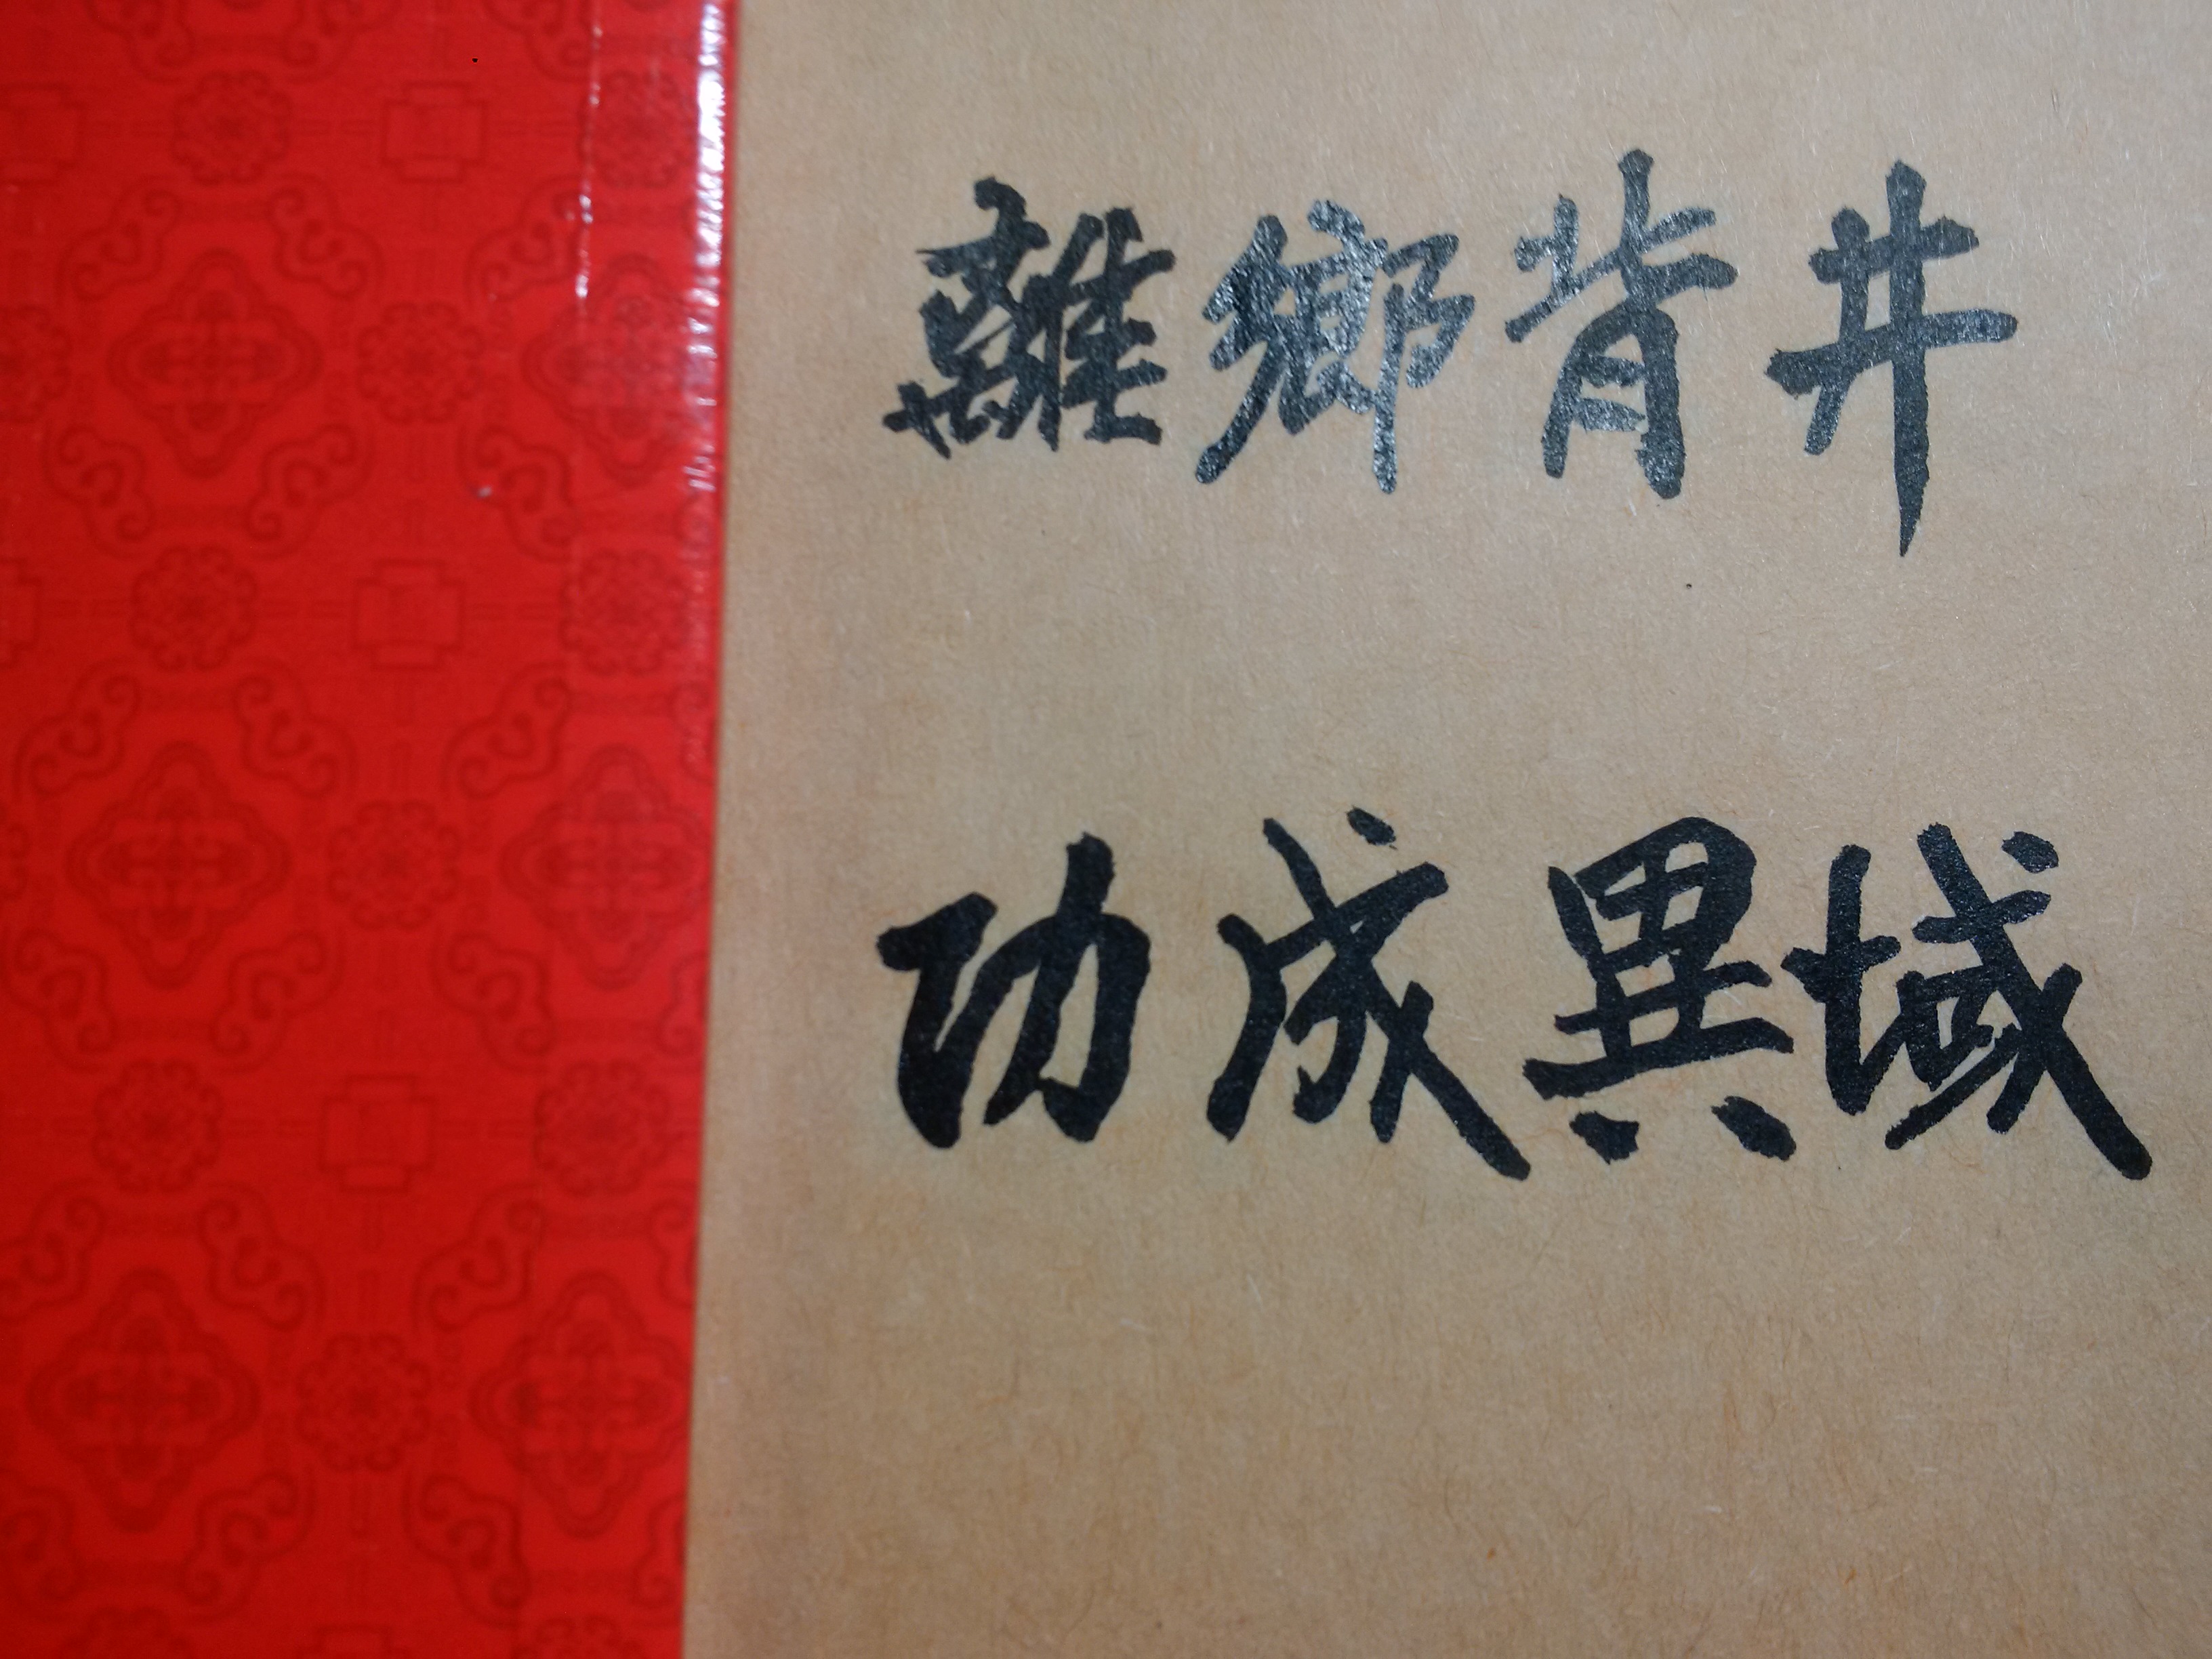 離鄉背井
功成異域